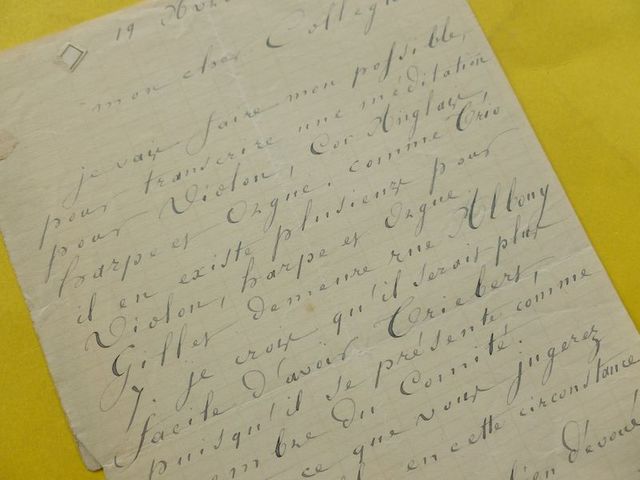 19
mon cher Collègue
je vais faire mon possible,
pour transcrire une méditation
pour Violon, Cor Anglais,
harpe et Orgue. comme Trio
il en existe plusieurs pour
Violon, harpe et Orgue.
Gillet demeure rue Albouy
7. je crois qu'il serait plus
facile d'avoir Triebert,
puisqu'il se présente comme
membre du Comité.
ce que vous jugerez
en cette circonstance
bien dévoué